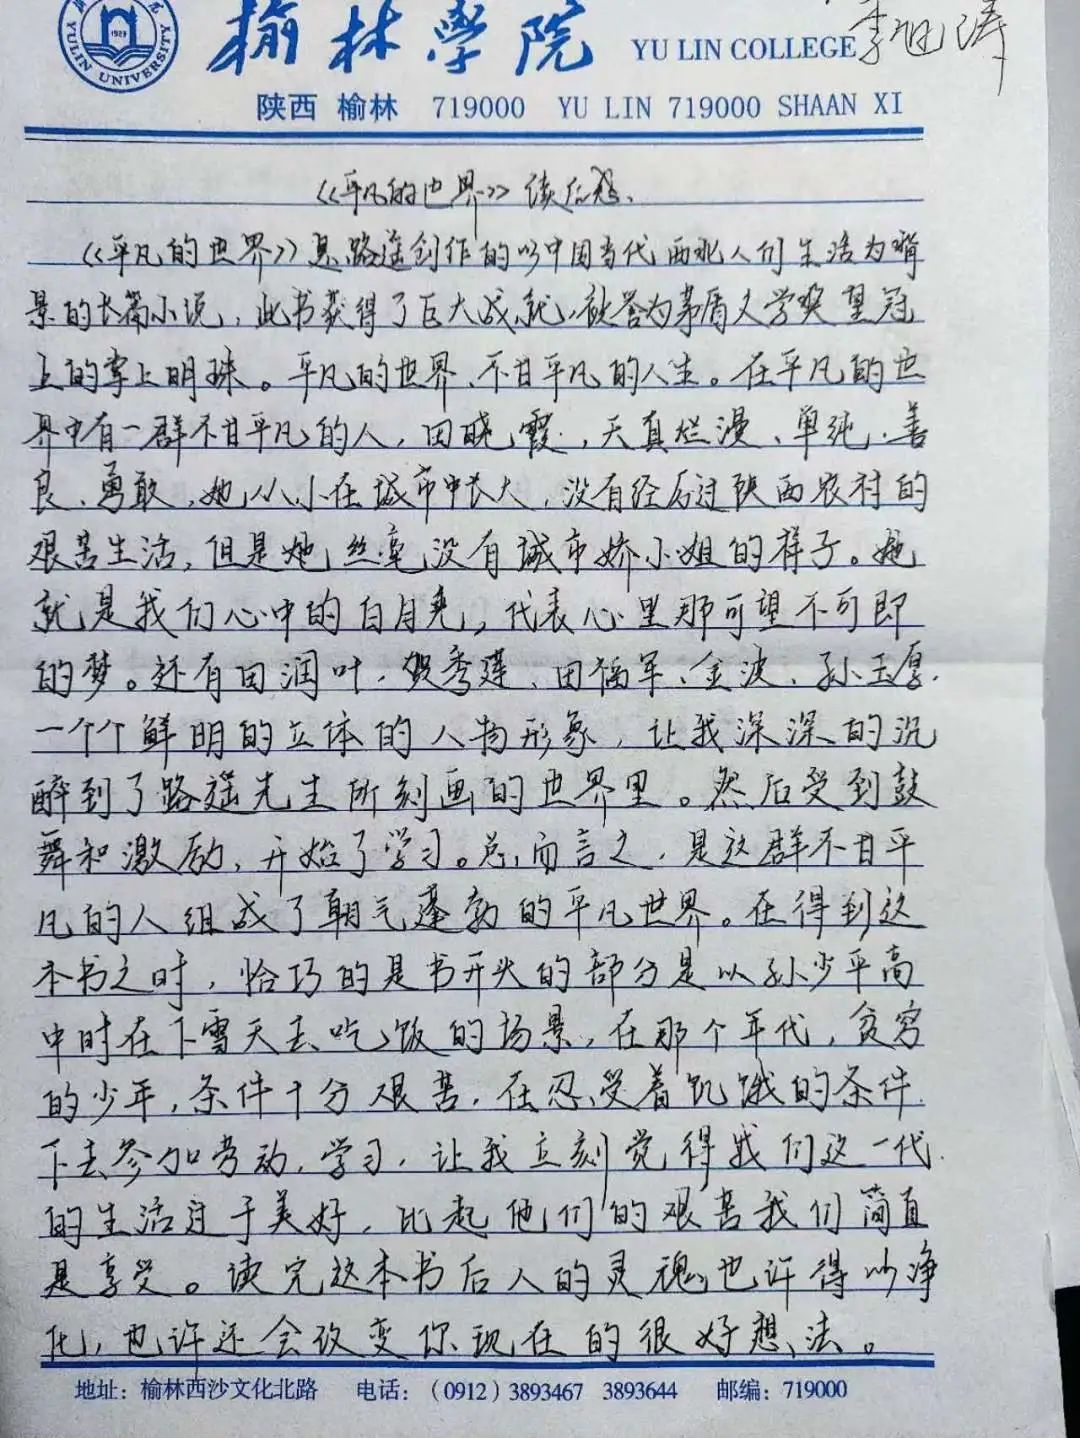 榆林学院 YU LIN COLLEGE 李旭涛
YULIN UNIVERSITY
1923
陕西 榆林 719000 YU LIN 719000 SHAAN XI
《平凡的世界》读后感.
《平凡的世界》是路遥创作的以中国当代西北人们生活为背
景的长篇小说，此书获得了巨大成就，被誉为茅盾文学奖皇冠
上的掌上明珠。平凡的世界、不甘平凡的人生。在平凡的世
界中有一群不甘平凡的人，田晓霞，天真烂漫、单纯、善
良、勇敢，她从小在城市中长大，没有经历过陕西农村的
艰苦生活，但是她丝毫没有城市娇小姐的样子。她
就是我们心中的白月光，代表心里那可望不可即
的梦。还有田润叶、贺秀莲、田福军、金波、孙玉厚.
一个个鲜明的立体的人物形象，让我深深的沉
醉到了路遥先生所刻画的世界里。然后受到鼓
舞和激励，开始了学习。总而言之，是这群不甘平
凡的人组成了朝气蓬勃的平凡世界。在得到这
本书之时，恰巧的是书开头的部分是以孙少平高
中时在下雪天去吃饭的场景，在那个年代，贫穷
的少年，条件十分艰苦，在忍受着饥饿的条件
下去参加劳动，学习，让我立刻觉得我们这一代
的生活过于美好，比起他们的艰苦我们简直
是享受。读完这本书后人的灵魂也许得以净
化，也许还会改变你现在的很好想法。
地址：榆林西沙文化北路 电话：（0912）3893467 3893644 邮编：719000